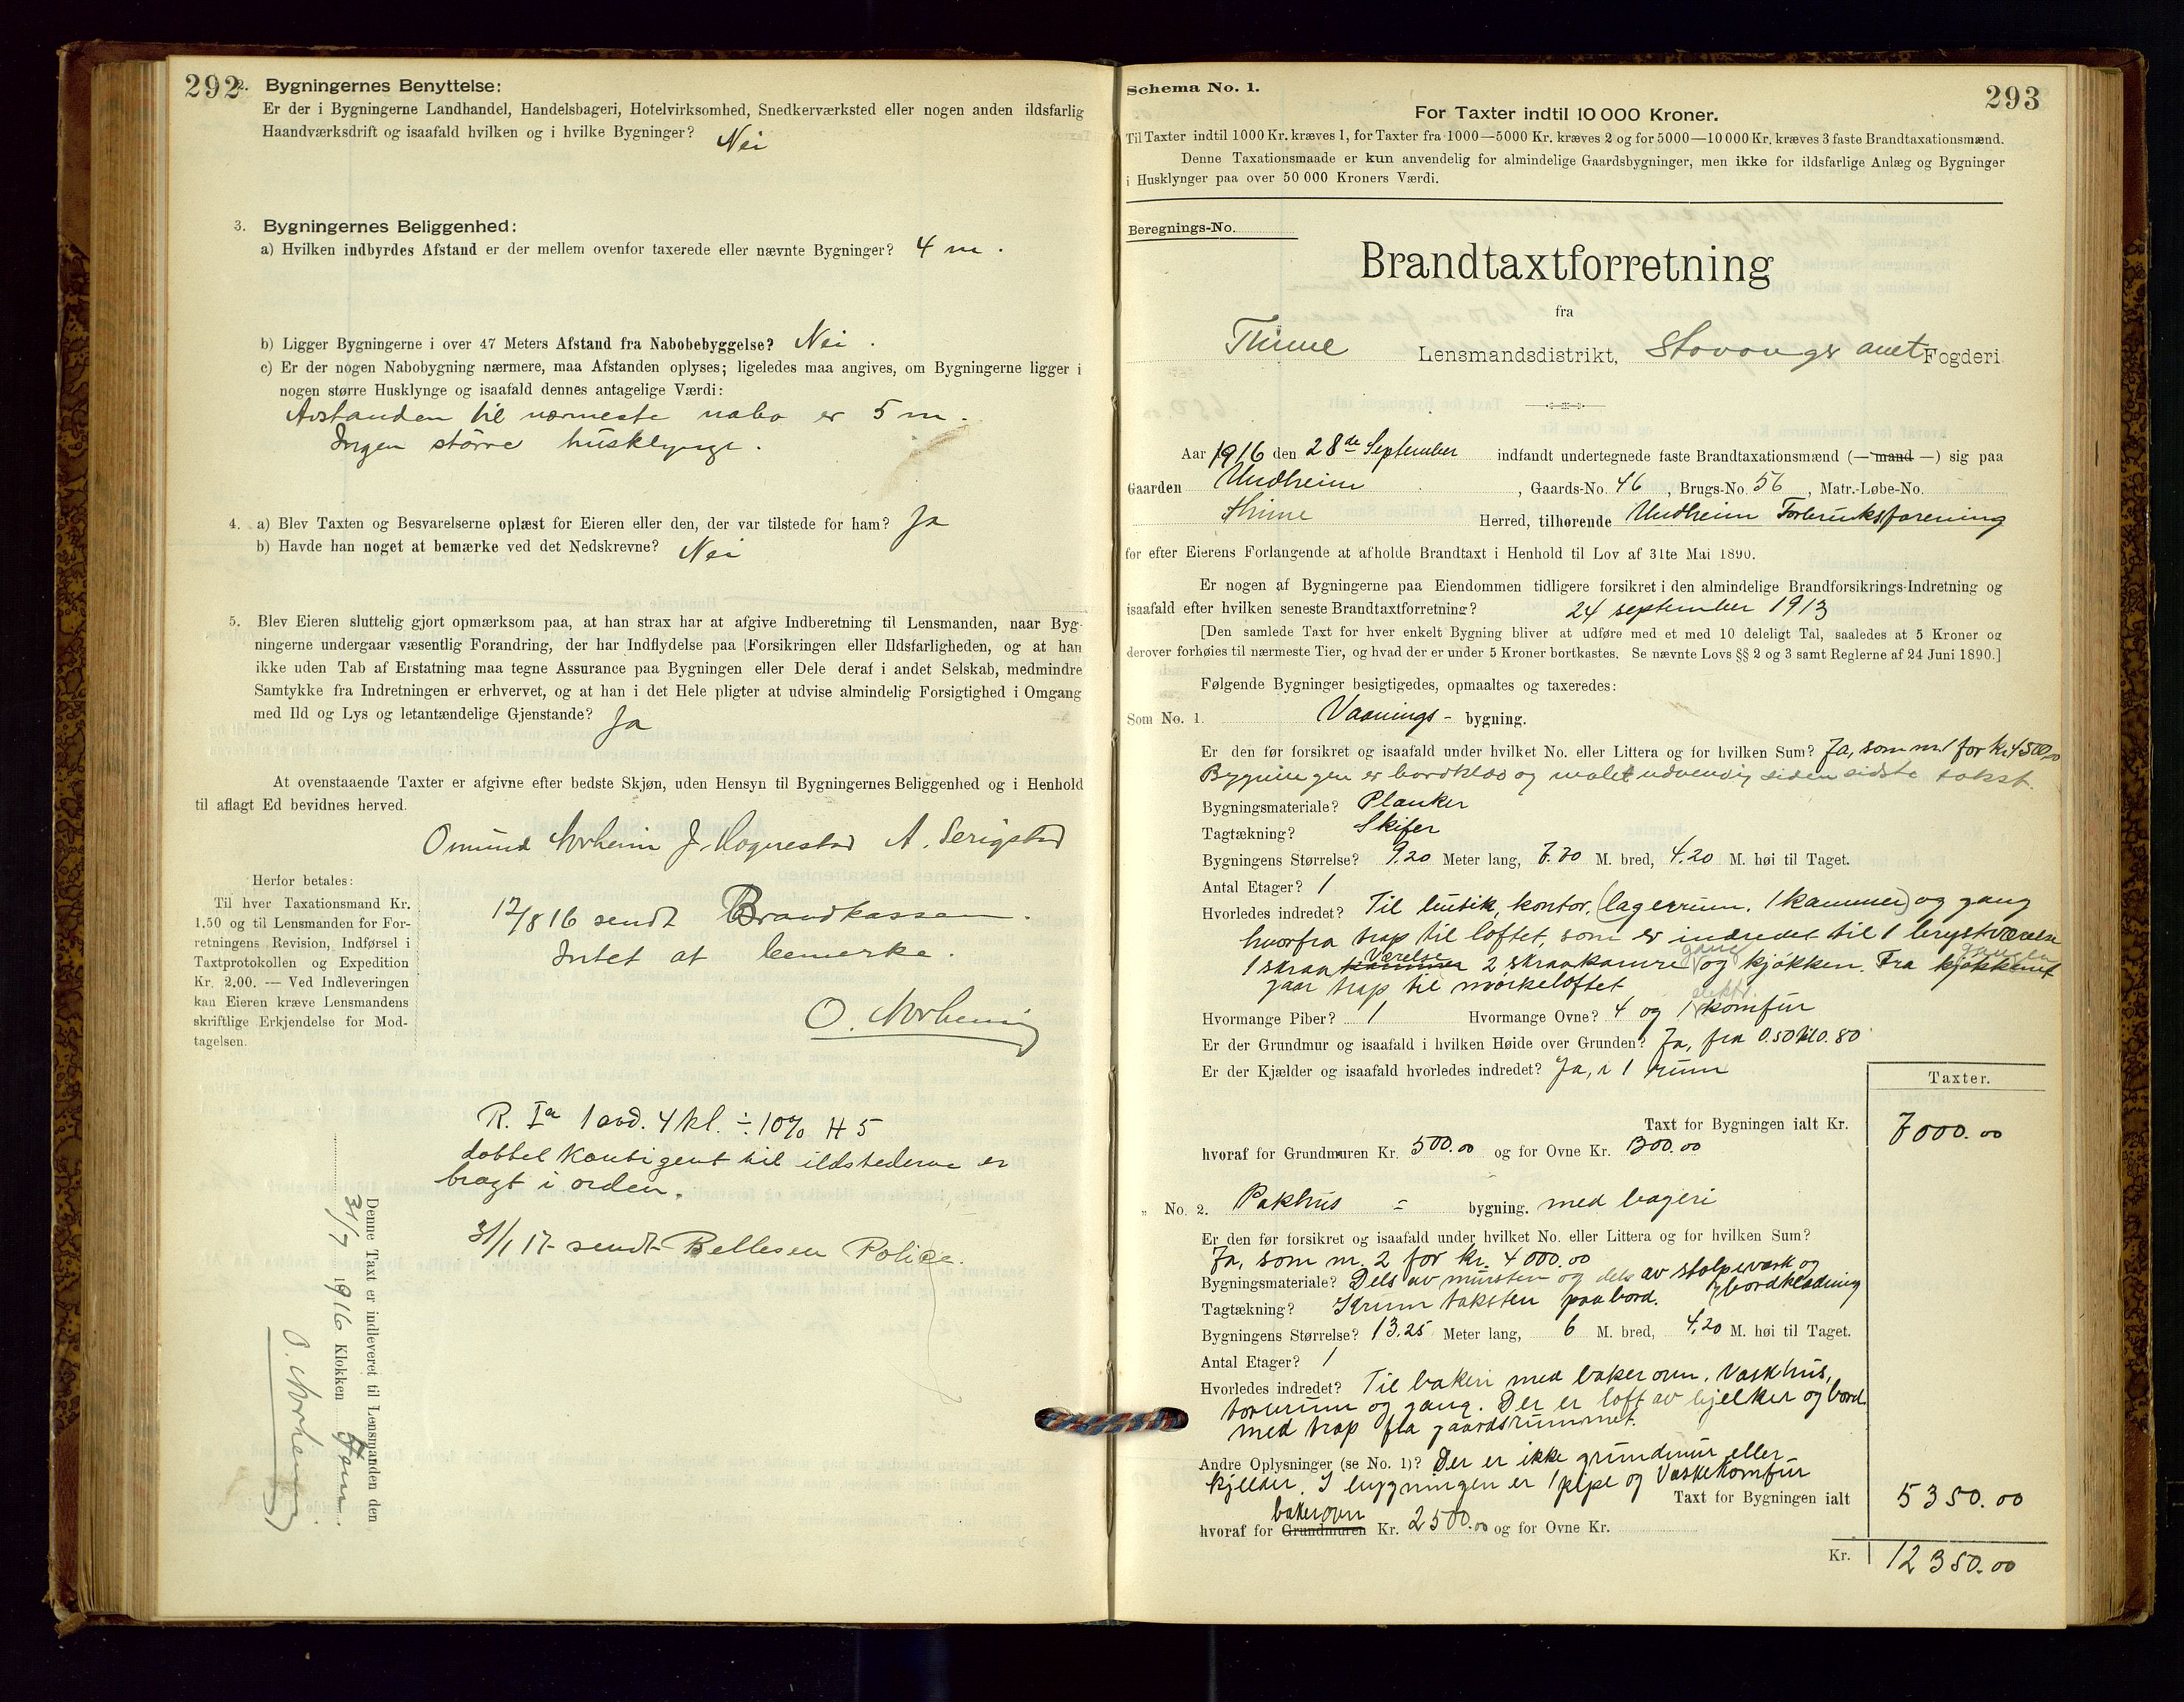 292
2. Bygningernes Benyttelse:
Er der i Bygningerne Landhandel, Handelsbageri, Hotelvirksomhed, Snedkerværksted eller nogen anden ildsfarlig
Haandværksdrift og isaafald hvilken og i hvilke Bygninger? Nei
3. Bygningernes Beliggenhed:
a) Hvilken indbyrdes Afstand er der mellem ovenfor taxerede eller nævnte Bygninger? 4 m.
b) Ligger Bygningerne i over 47 Meters Afstand fra Nabobebyggelse? Nei.
c) Er der nogen Nabobygning nærmere, maa Afstanden oplyses; ligeledes maa angives, om Bygningerne ligger i
nogen større Husklynge og isaafald dennes antagelige Værdi:
Avstanden til nærmeste nabo er 5 m.
Ingen större husklynge.
4. a) Blev Taxten og Besvarelserne oplæst for Eieren eller den, der var tilstede for ham? Ja
b) Havde han noget at bemærke ved det Nedskrevne? Nei
5. Blev Eieren sluttelig gjort opmærksom paa, at han strax har at afgive Indberetning til Lensmanden, naar Byg-
ningerne undergaar væsentlig Forandring, der har Indflydelse paa [Forsikringen eller Ildsfarligheden, og at han
ikke uden Tab af Erstatning maa tegne Assurance paa Bygningen eller Dele deraf i andet Selskab, medmindre
Samtykke fra Indretningen er erhvervet, og at han i det Hele pligter at udvise almindelig Forsigtighed i Omgang
med Ild og Lys og letantændelige Gjenstande? Ja
At ovenstaaende Taxter er afgivne efter bedste Skjøn, uden Hensyn til Bygningernes Beliggenhed og i Henhold
til aflagt Ed bevidnes herved.
Omund Norheim J. Hognestad A. Serigstad
Herfor betales:
Til hver Taxationsmand Kr.
1.50 og til Lensmanden for For-
retningens Revision, Indførsel i
Taxtprotokollen og Expedition
Kr. 2.00. — Ved Indleveringen
kan Eieren kræve Lensmandens
skriftlige Erkjendelse for Mod-
tagelsen.
12/8 16 sendt Brandkassen.
Intet at bemerke.
O. Norheim
R. Ia 1 avd. 4 kl. ÷ 10% H 5
dobbel kontigent til ildstederne er
bragt i orden.
31/1 17 sendt Polise.
Denne Taxt er indleveret til Lensmanden den
31/7 1916 Klokken
O. Norheim
293
Schema No. 1.
For Taxter indtil 10 000 Kroner.
Til Taxter indtil 1000 Kr. kræves 1, for Taxter fra 1000—5000 Kr. kræves 2 og for 5000—10 000 Kr. kræves 3 faste Brandtaxationsmænd.
Denne Taxationsmaade er kun anvendelig for almindelige Gaardsbygninger, men ikke for ildsfarlige Anlæg og Bygninger
i Husklynger paa over 50 000 Kroners Værdi.
Beregnings-No.
Brandtaxtforretning
fra
Thime Lensmandsdistrikt, Stavanger amt Fogderi
Aar 1916 den 28de September indfandt undertegnede faste Brandtaxationsmænd (— mand —) sig paa
Gaarden Undheim, Gaards-No. 46, Brugs-No. 56, Matr.-Løbe-No.
Thime Herred, tilhørende Undheim Forbruksforening
for efter Eierens Forlangende at afholde Brandtaxt i Henhold til Lov af 31te Mai 1890.
Er nogen af Bygningerne paa Eiendommen tidligere forsikret i den almindelige Brandforsikrings-Indretning og
isaafald efter hvilken seneste Brandtaxtforretning? 24 september 1913
[Den samlede Taxt for hver enkelt Bygning bliver at udføre med et med 10 deleligt Tal, saaledes at 5 Kroner og
derover forhøies til nærmeste Tier, og hvad der er under 5 Kroner bortkastes. Se nævnte Lovs §§ 2 og 3 samt Reglerne af 24 Juni 1890.]
Følgende Bygninger besigtigedes, opmaaltes og taxeredes:
Som No. 1. Vaanings- bygning.
Er den før forsikret og isaafald under hvilket No. eller Littera og for hvilken Sum? Ja, som nr 1 for kr. 4500,00
Bygningen er bordklæd og malet udvendig siden sidste takst.
Bygningsmateriale? Planker
Tagtækning? Skifer
Bygningens Størrelse? 9.20 Meter lang, 7.70 M. bred, 4.20 M. høi til Taget.
Antal Etager? 1
Hvorledes indredet? Til butik, kontor, (lagerrum. 1 kammer) og gang
hvorfra trap til loftet, som er indredet til 1 brystværelse
1 skraa kammer Værelse 2 skraakamre gang og kjøkken. Fra kjøkkenet gangen
gaar trap til mørkeloftet
Hvormange Piber? 1 Hvormange Ovne? 4 og 1 elektr. komfür
Er der Grundmur og isaafald i hvilken Høide over Grunden? Ja, fra 0.50 til 0.80
Er der Kjælder og isaafald hvorledes indredet? Ja, i 1 rum
Taxter.
Taxt for Bygningen ialt Kr. 7000.00
hvoraf for Grundmuren Kr. 500.00 og for Ovne Kr. 300.00
„ No. 2. Pakhus = bygning. med bageri
Er den før forsikret og isaafald under hvilket No. eller Littera og for hvilken Sum?
Ja, som nr. 2 for kr. 4000.00
Bygningsmateriale? Dels av mursten og dels av stolpeværk og bordklædning
Tagtækning? Krum taksten paa bord.
Bygningens Størrelse? 13.25 Meter lang, 6 M. bred, 4,20 M. høi til Taget.
Antal Etager? 1
Hvorledes indredet? Til bakeri med bakerovn. Vaskhus,
torvrum og gang. Der er loft av bjelker og bord
med trap fra gaardsrummet.
Andre Oplysninger (se No. 1)? Der er ikke grundmur eller
kjelder. I bygningen er 1 pipe og Vaskekomfür
Taxt for Bygningen ialt 5350.00
hvoraf for Grundmuren bakerovn Kr. 2500.00 og for Ovne Kr.
Kr. 12350.00